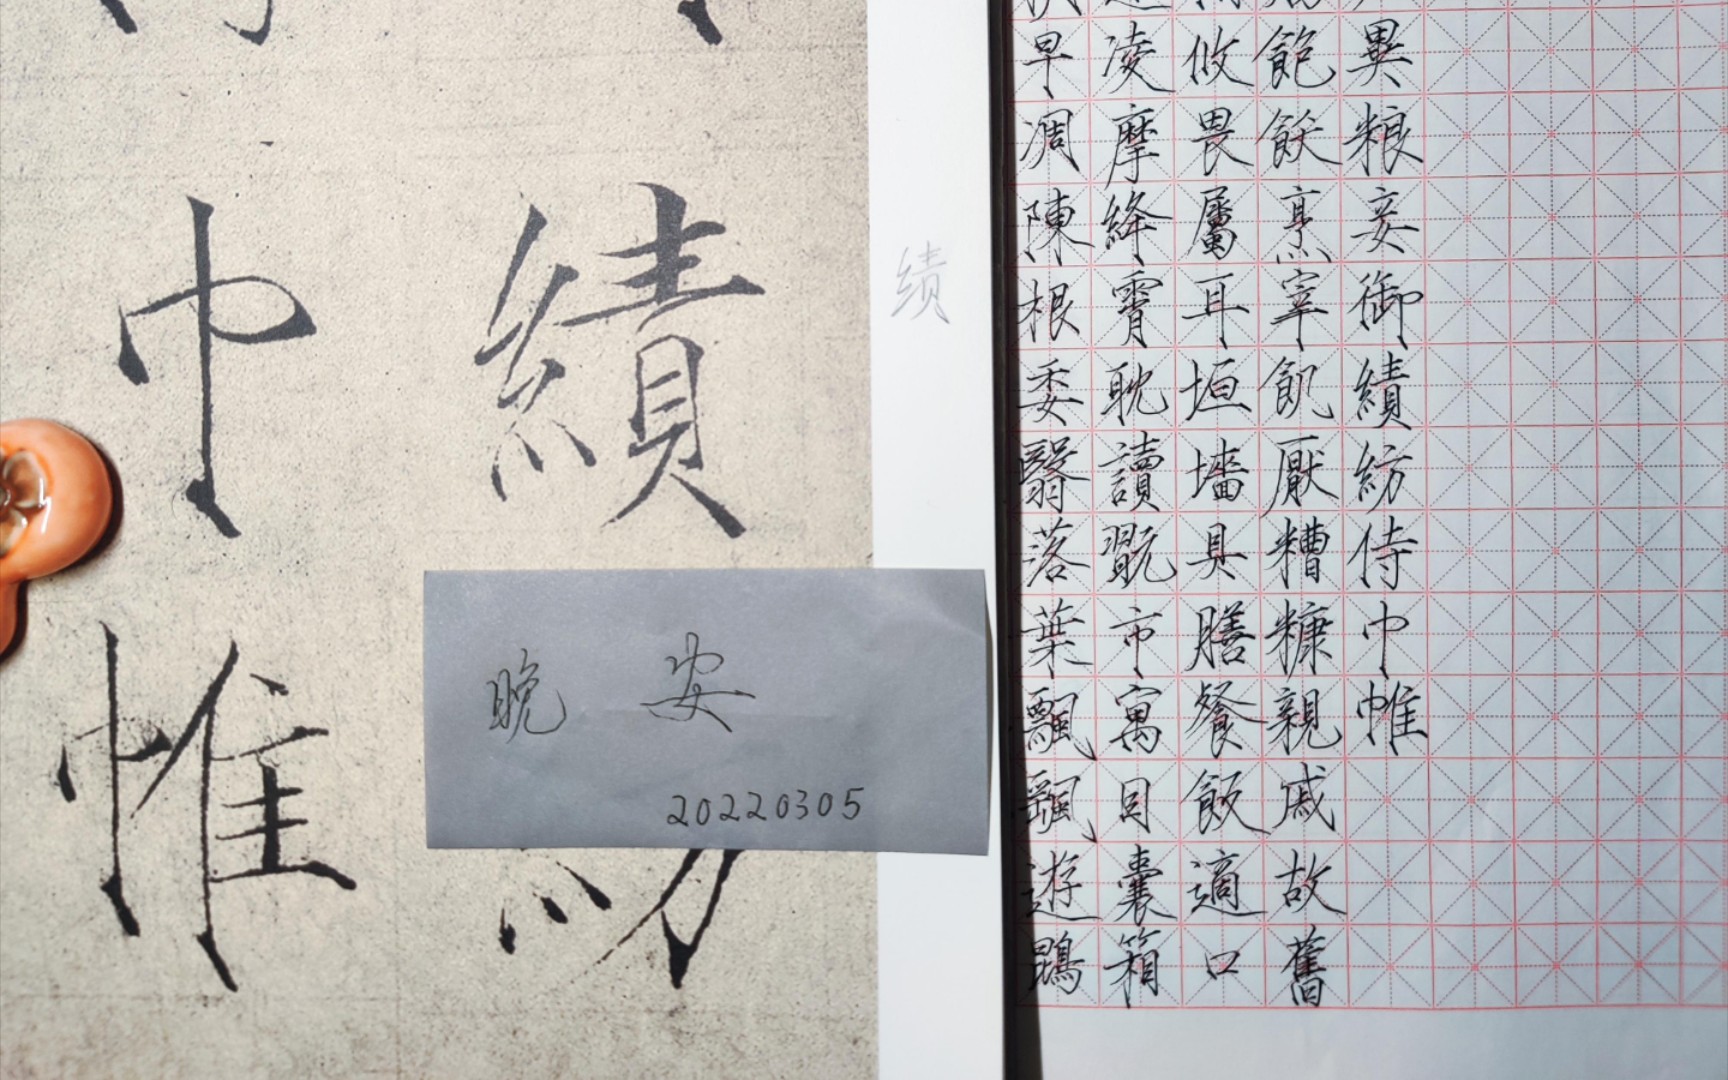 績
巾帷
绩
晚安
20220305
早凋陳根委翳落葉飄颻遊鵾
凌摩絳霄耽讀翫市寓目囊箱
攸畏屬耳垣墻具膳餐飯適口
飽飫烹宰飢厭糟糠親戚故舊
異粮妾御績紡侍巾帷